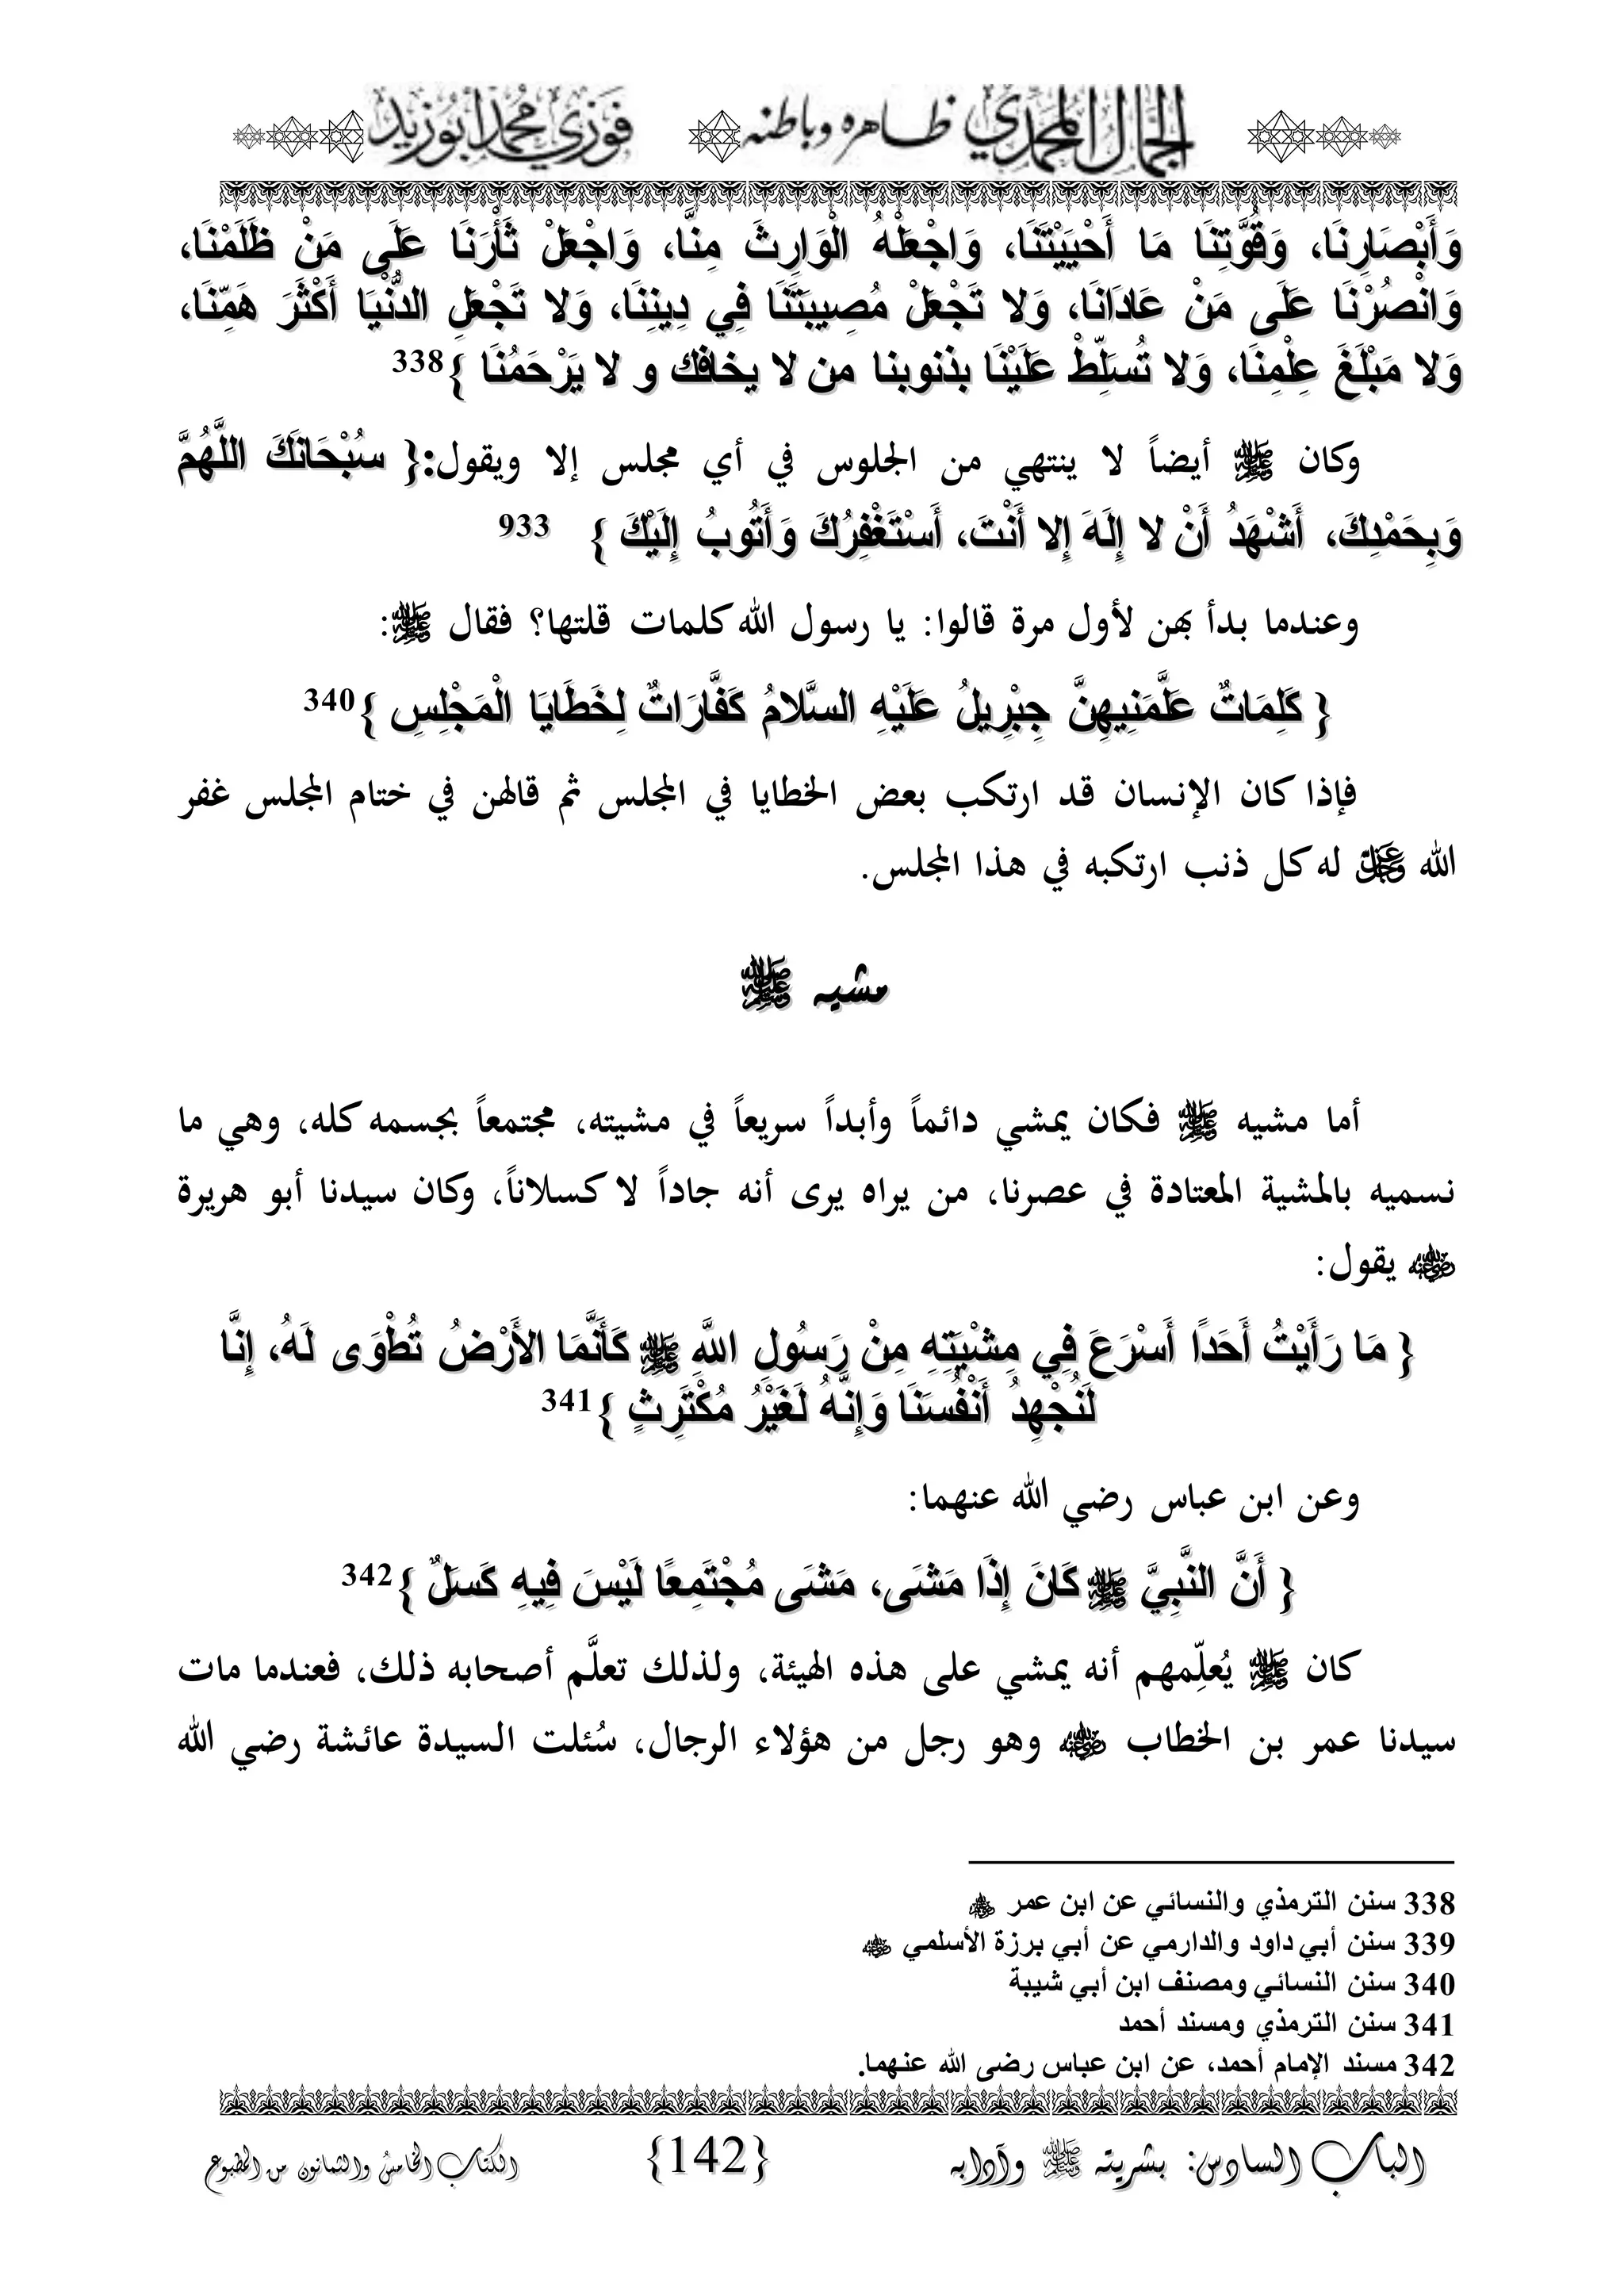 الجمال المحمدي ظاهره وباطنه فوزي محمد أبوزيد
وَأَبْصَارِنَا، وَقُوَّتِنَا مَا أَحْيَيْتَنَا، وَاجْعَلْهُ الْوَارِثَ مِنَّا، وَاجْعَلْ ثَأْرَنَا عَلَى مَنْ ظَلَمَنَا،
وَانْصُرْنَا عَلَى مَنْ عَادَانَا، وَلا تَجْعَلْ مُصِيبَتَنَا فِي دِينِنَا، وَلا تَجْعَلِ الدُّنْيَا أَكْثَرَ هَمِّنَا،
وَلا مَبْلَغَ عِلْمِنَا، وَلا تُسَلِّطْ عَلَيْنَا بذنوبنا من لا يخافك و لا يَرْحَمُنَا }338
وكان ﷺ أيضاً لا ينتهي من الجلوس في أي مجلس إلا ويقول:{ سُبْحَانَكَ اللَّهُمَّ
وَبِحَمْدِكَ، أَشْهَدُ أَنْ لا إِلَهَ إِلا أَنْتَ، أَسْتَغْفِرُكَ وَأَتُوبُ إِلَيْكَ } 933
وعندما بدأ بهن لأول مرة قالوا: يا رسول الله كلمات قلتها؟ فقال ﷺ:
{ كَلِمَاتٌ عَلَّمَنِيهِنَّ جِبْرِيلُ عَلَيْهِ السَّلامُ كَفَّارَاتٌ لِخَطَايَا الْمَجْلِسِ }340
فإذا كان الإنسان قد ارتكب بعض الخطايا في المجلس ثم قالهن في ختام المجلس غفر
الله ﷻ له كل ذنب ارتكبه في هذا المجلس.
مشيه ﷺ
أما مشيه ﷺ فكان يمشي دائماً وأبداً سريعاً في مشيته، مجتمعاً بجسمه كله، وهي ما
نسميه بالمشية المعتادة في عصرنا، من يراه يرى أنه جاداً لا كسلاناً، وكان سيدنا أبو هريرة
رضي الله عنه يقول:
{ مَا رَأَيْتُ أَحَدًا أَسْرَعَ فِي مِشْيَتِهِ مِنْ رَسُولِ اللَّهِ ﷺ كَأَنَّمَا الأَرْضُ تُطْوَى لَهُ، إِنَّا
لَنُجْهِدُ أَنْفُسَنَا وَإِنَّهُ لَغَيْرُ مُكْتَرِثٍ }341
وعن ابن عباس رضي الله عنهما:
{ أَنَّ النَّبِيَّ ﷺ كَانَ إِذَا مَشَى، مَشَى مُجْتَمِعًا لَيْسَ فِيهِ كَسَلٌ }342
كان ﷺ يُعلِّمهم أنه يمشي على هذه الهيئة، ولذلك تعلَّم أصحابه ذلك، فعندما مات
سيدنا عمر بن الخطاب رضي الله عنه وهو رجل من هؤلاء الرجال، سُئلت السيدة عائشة رضي الله
338 سنن الترمذي والنسائي عن ابن عمر رضي الله عنه
339 سنن أبي داود والدارمي عن أبي برزة الأسلمي رضي الله عنه
340 سنن النسائي ومصنف ابن أبي شيبة
341 سنن الترمذي ومسند أحمد
342 مسند الإمام أحمد، عن ابن عباس رضى الله عنهما.
الباب السادس: بشريته ﷺ وآدابه {142} الكتاب الخامس والثمانون من المطبوع